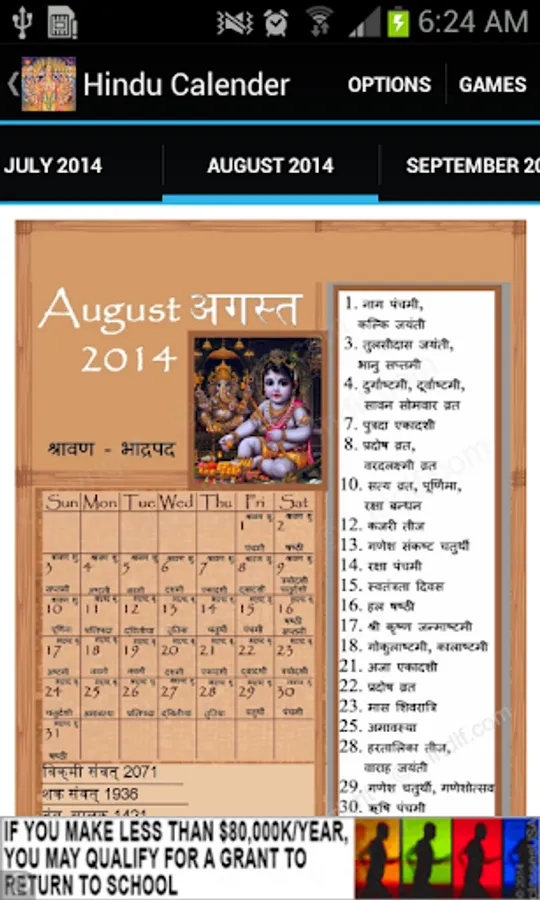 6:24 AM
Hindu Calender OPTIONS GAMES
JULY 2014 AUGUST 2014 SEPTEMBER 20
August अगस्त
2014
श्रावण - भाद्रपद
Sun Mon Tue Wed Thu Fri Sat
1 2
पंचमी षष्ठी
3 4 5 6 7 8 9
10 11 12 13 14 15 16
17 18 19 20 21 22 23
24 25 26 27 28 29 30
31
षष्ठी
विक्रमी संवत् 2071
शक संवत् 1936
1. नाग पंचमी,
कल्कि जयंती
3. तुलसीदास जयंती,
भानु सप्तमी
4. दुर्गाष्टमी, दूर्वाष्टमी,
सावन सोमवार व्रत
7. पुत्रदा एकादशी
8. प्रदोष व्रत,
वरदलक्ष्मी व्रत
10. सत्य व्रत, पूर्णिमा,
रक्षा बन्धन
12. कजरी तीज
13. गणेश संकष्ट चतुर्थी
14. रक्षा पंचमी
15. स्वतंत्रता दिवस
16. हल षष्ठी
17. श्री कृष्ण जन्माष्टमी
18. गोकुलाष्टमी, कालाष्टमी
21. अजा एकादशी
22. प्रदोष व्रत
23. मास शिवरात्रि
25. अमावस्या
28. हरतालिका तीज,
वाराह जयंती
29. गणेश चतुर्थी, गणेशोत्सव
30. ऋषि पंचमी
IF YOU MAKE LESS THAN $80,000K/YEAR,
YOU MAY QUALIFY FOR A GRANT TO
RETURN TO SCHOOL